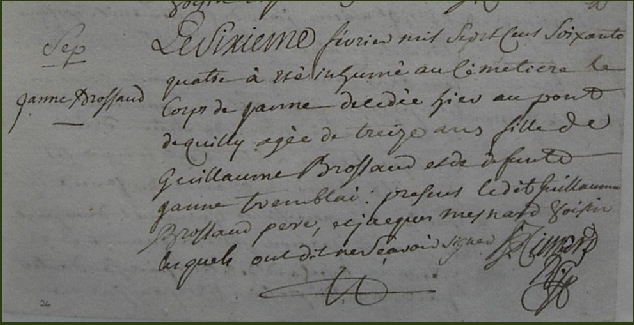 Sep
janne Brossaud
Le Sixieme février mil Sept Cent Soixante
quatre à été inhumé au Cémetiere le
Corps de janne decedée hier au pont
de quilly agée de treize ans fille de
Guillaume Brossaud et de defunte
janne tremblai : presens ledit Guillaume
Brossaud pere, et jacques mesnard Voisin
lesquels ont dit ne Sçavoir signer